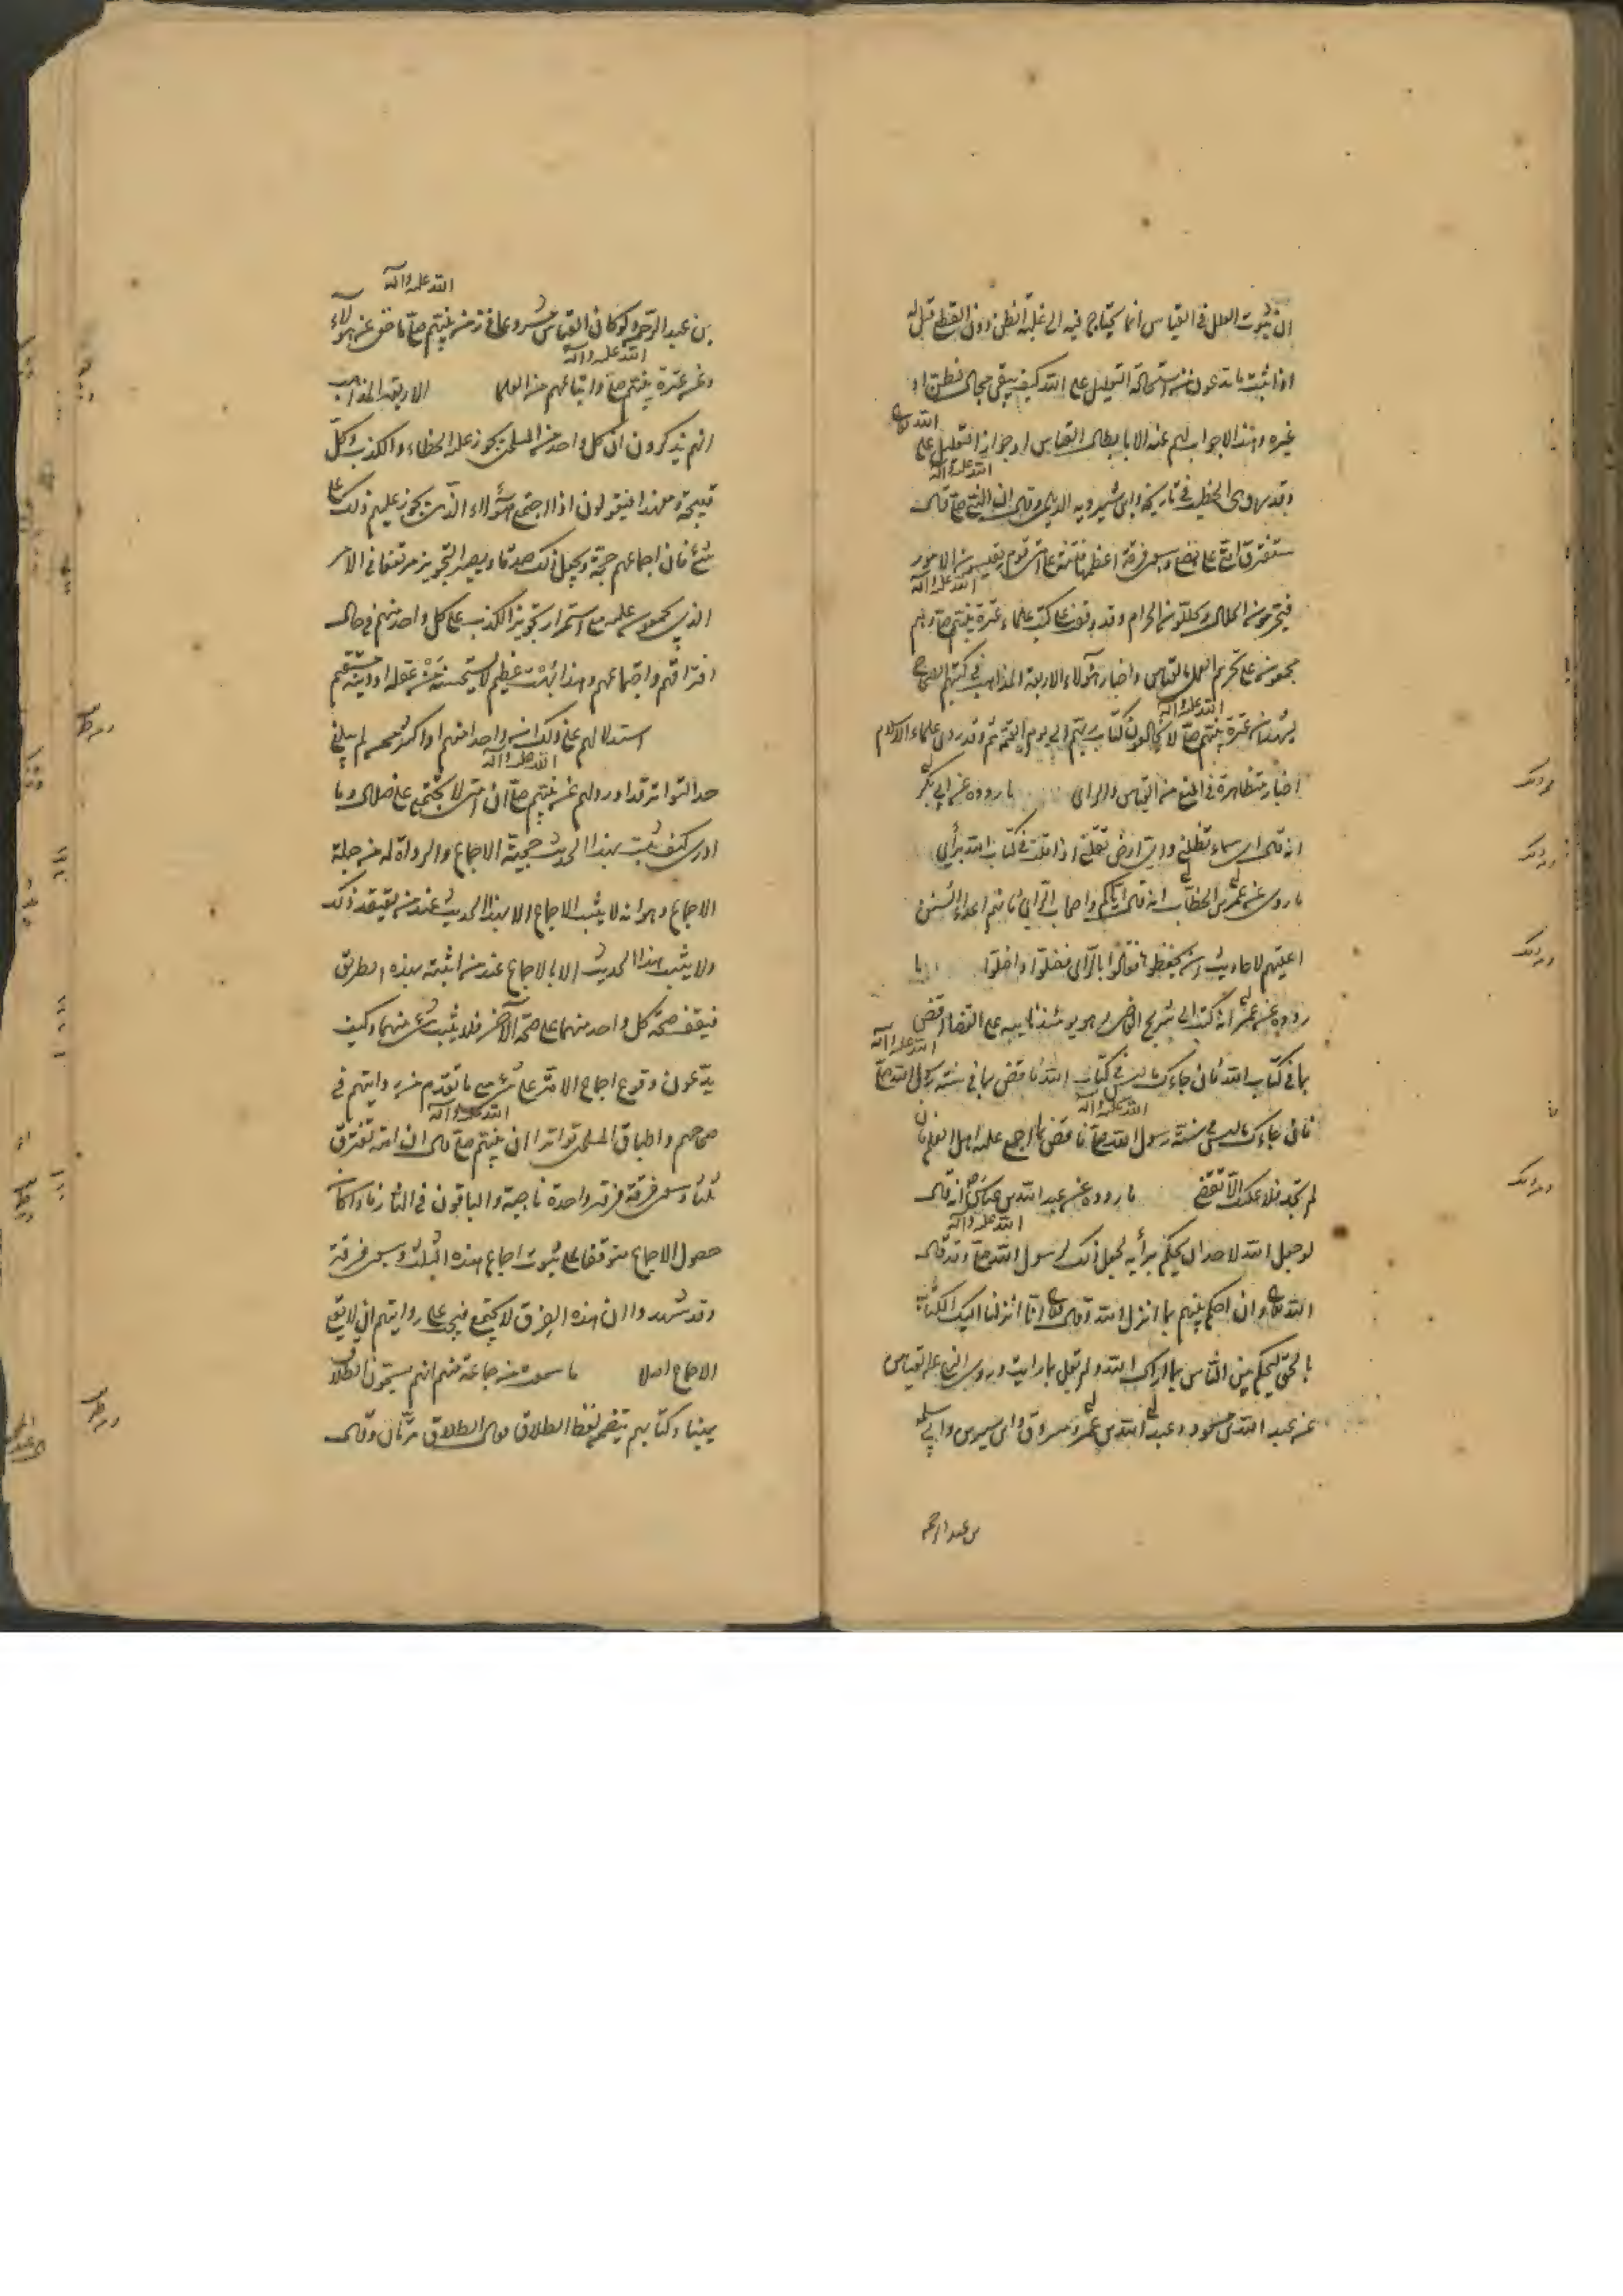 ان ثبوت العلل فى القياس انما يحتاج فيه الى غلبة الظن دون القطع قيل له
اذا ثبت ما تدعون من استحالة التعليل على الله كيف يبقى مجال لظن او
الله تعالى
غيره وهذا لا جواب لهم عنه الا بابطال القياس او جواز التعليل على
الله عليه وآله
وقد روى الخطيب فى تاريخه وابن شيرويه الديلمى وقال ان النبى ص قال
ستفترق امتى على بضع وسبعين فرقة اعظمها فتنة على امتى قوم يقيسون الامور
الله عليه وآله
فيحرمون الحلال ويحللون الحرام وقد وقفت على كتب علماء عترة نبيهم ص وهم
مجمعون على تحريم العمل بالقياس واخبار هؤلاء الاربعة المذاهب فى كتبهم الصحاح
الله عليه وآله
يشهد ان عترة نبيهم ص لا يخالفون كتاب ربهم الى يوم القيمة ثم وقد روى علماء الاسلام
اخبار متظاهرة فى المنع من القياس والراى ما رووه عن ابى بكر
انه قال اى سماء تظلنى واى ارض تقلنى اذا قلت فى كتاب الله برأيى
ما روى عن عمر بن الخطاب انه قال اياكم واصحاب الرأى فانهم اعداء السنن
اعيتهم الاحاديث ان يحفظوها فقالوا بالرأى فضلوا واضلوا ما
رووه عن عمر انه كتب الى شريح القاضى وهو يومئذ نايبه على القضاء اقض
الله عليه وآله
بما فى كتاب الله فان جاءك ما ليس فى كتاب الله فاقض بما فى سنة رسول الله ص
الله عليه وآله
فان جاءك ما ليس فى سنة رسول الله ص فاقض بما اجمع عليه اهل العلم فان
لم تجد فلا عليك الا تقضى ما رووه عن عبد الله بن عباس انه قال
الله عليه وآله
لو جعل الله لاحد ان يحكم برأيه لجعل ذلك لرسول الله ص وقد قال
الله تعالى وان احكم بينهم بما انزل الله وقال تعالى انا انزلنا اليك الكتاب
بالحق لتحكم بين الناس بما اراك الله ولم يقل بما رايت وروى النهى عن القياس
عن عبد الله بن مسعود وعبد الله بن عمر ومسروق وابن سيرين وابى سلمه
بن عبد الرحمن
الله عليه وآله
بن عبد الرحمن ولو كان القياس مشروعا فى زمن نبيهم ص ما خفى عن هؤلاء
الله عليه وآله
وعن عترة نبيهم ص واتباعهم من العلما الاربعة المذاهب
انهم يذكرون ان كل واحد من المسلمين يجوز عليه الخطاء والكذب وكل
قبيحة ومع هذا فيقولون اذا اجتمع هؤلاء الذين يجوز عليهم ذلك على
شئ فان اجماعهم حجة ويجعل ذلك صدقا ويصير التجويز مرتفعا فى الامر
الذى يجمعون عليه مع استمرار تجويز الكذب على كل واحد منهم فى حال
افتراقهم واجتماعهم وهذا بهت عظيم لا يستحسنه من عقله او دينه مستقيم
استدلالهم على ذلك ان واحدا منهم او اكثر ممن لم يبلغ
الله عليه وآله
حد التواتر قد اورد لهم عن نبيهم ص ان امتى لا تجتمع على ضلال وما
ادرى كيف يثبت بهذا الحديث حجية الاجماع والرواة له من جملة
الاجماع وهو انه لا يثبت الاجماع الا بهذا الحديث عند من يعتقد ذلك
ولا يثبت هذا الحديث الا بالاجماع عند من اثبته بهذه الطريق
فيقف صحة كل واحد منهما على صحة الآخر فلا يثبت شئ منهما وكيف
يدعون وقوع اجماع الامة على شئ مع ما تقدم من روايتهم فى
الله عليه وآله
صحاحهم واطباق المسلمين تواترا ان نبيهم ص قال ان امته تفترق
ثلثا وسبعين فرقة فرقة واحدة ناجية والباقون فى النار فاذا كان
حصول الاجماع متوقفا على ثبوت اجماع هذه الثلث وسبعين فرقة
وقد شهدوا ان هذه الفرق لا يجتمع فيجب على روايتهم ان لا يقع
الاجماع اصلا ما سمعت من جماعة منهم انهم يسمون الطلاق
يمينا وكتابهم يتضمن لفظ الطلاق قال الطلاق مرتان وقال